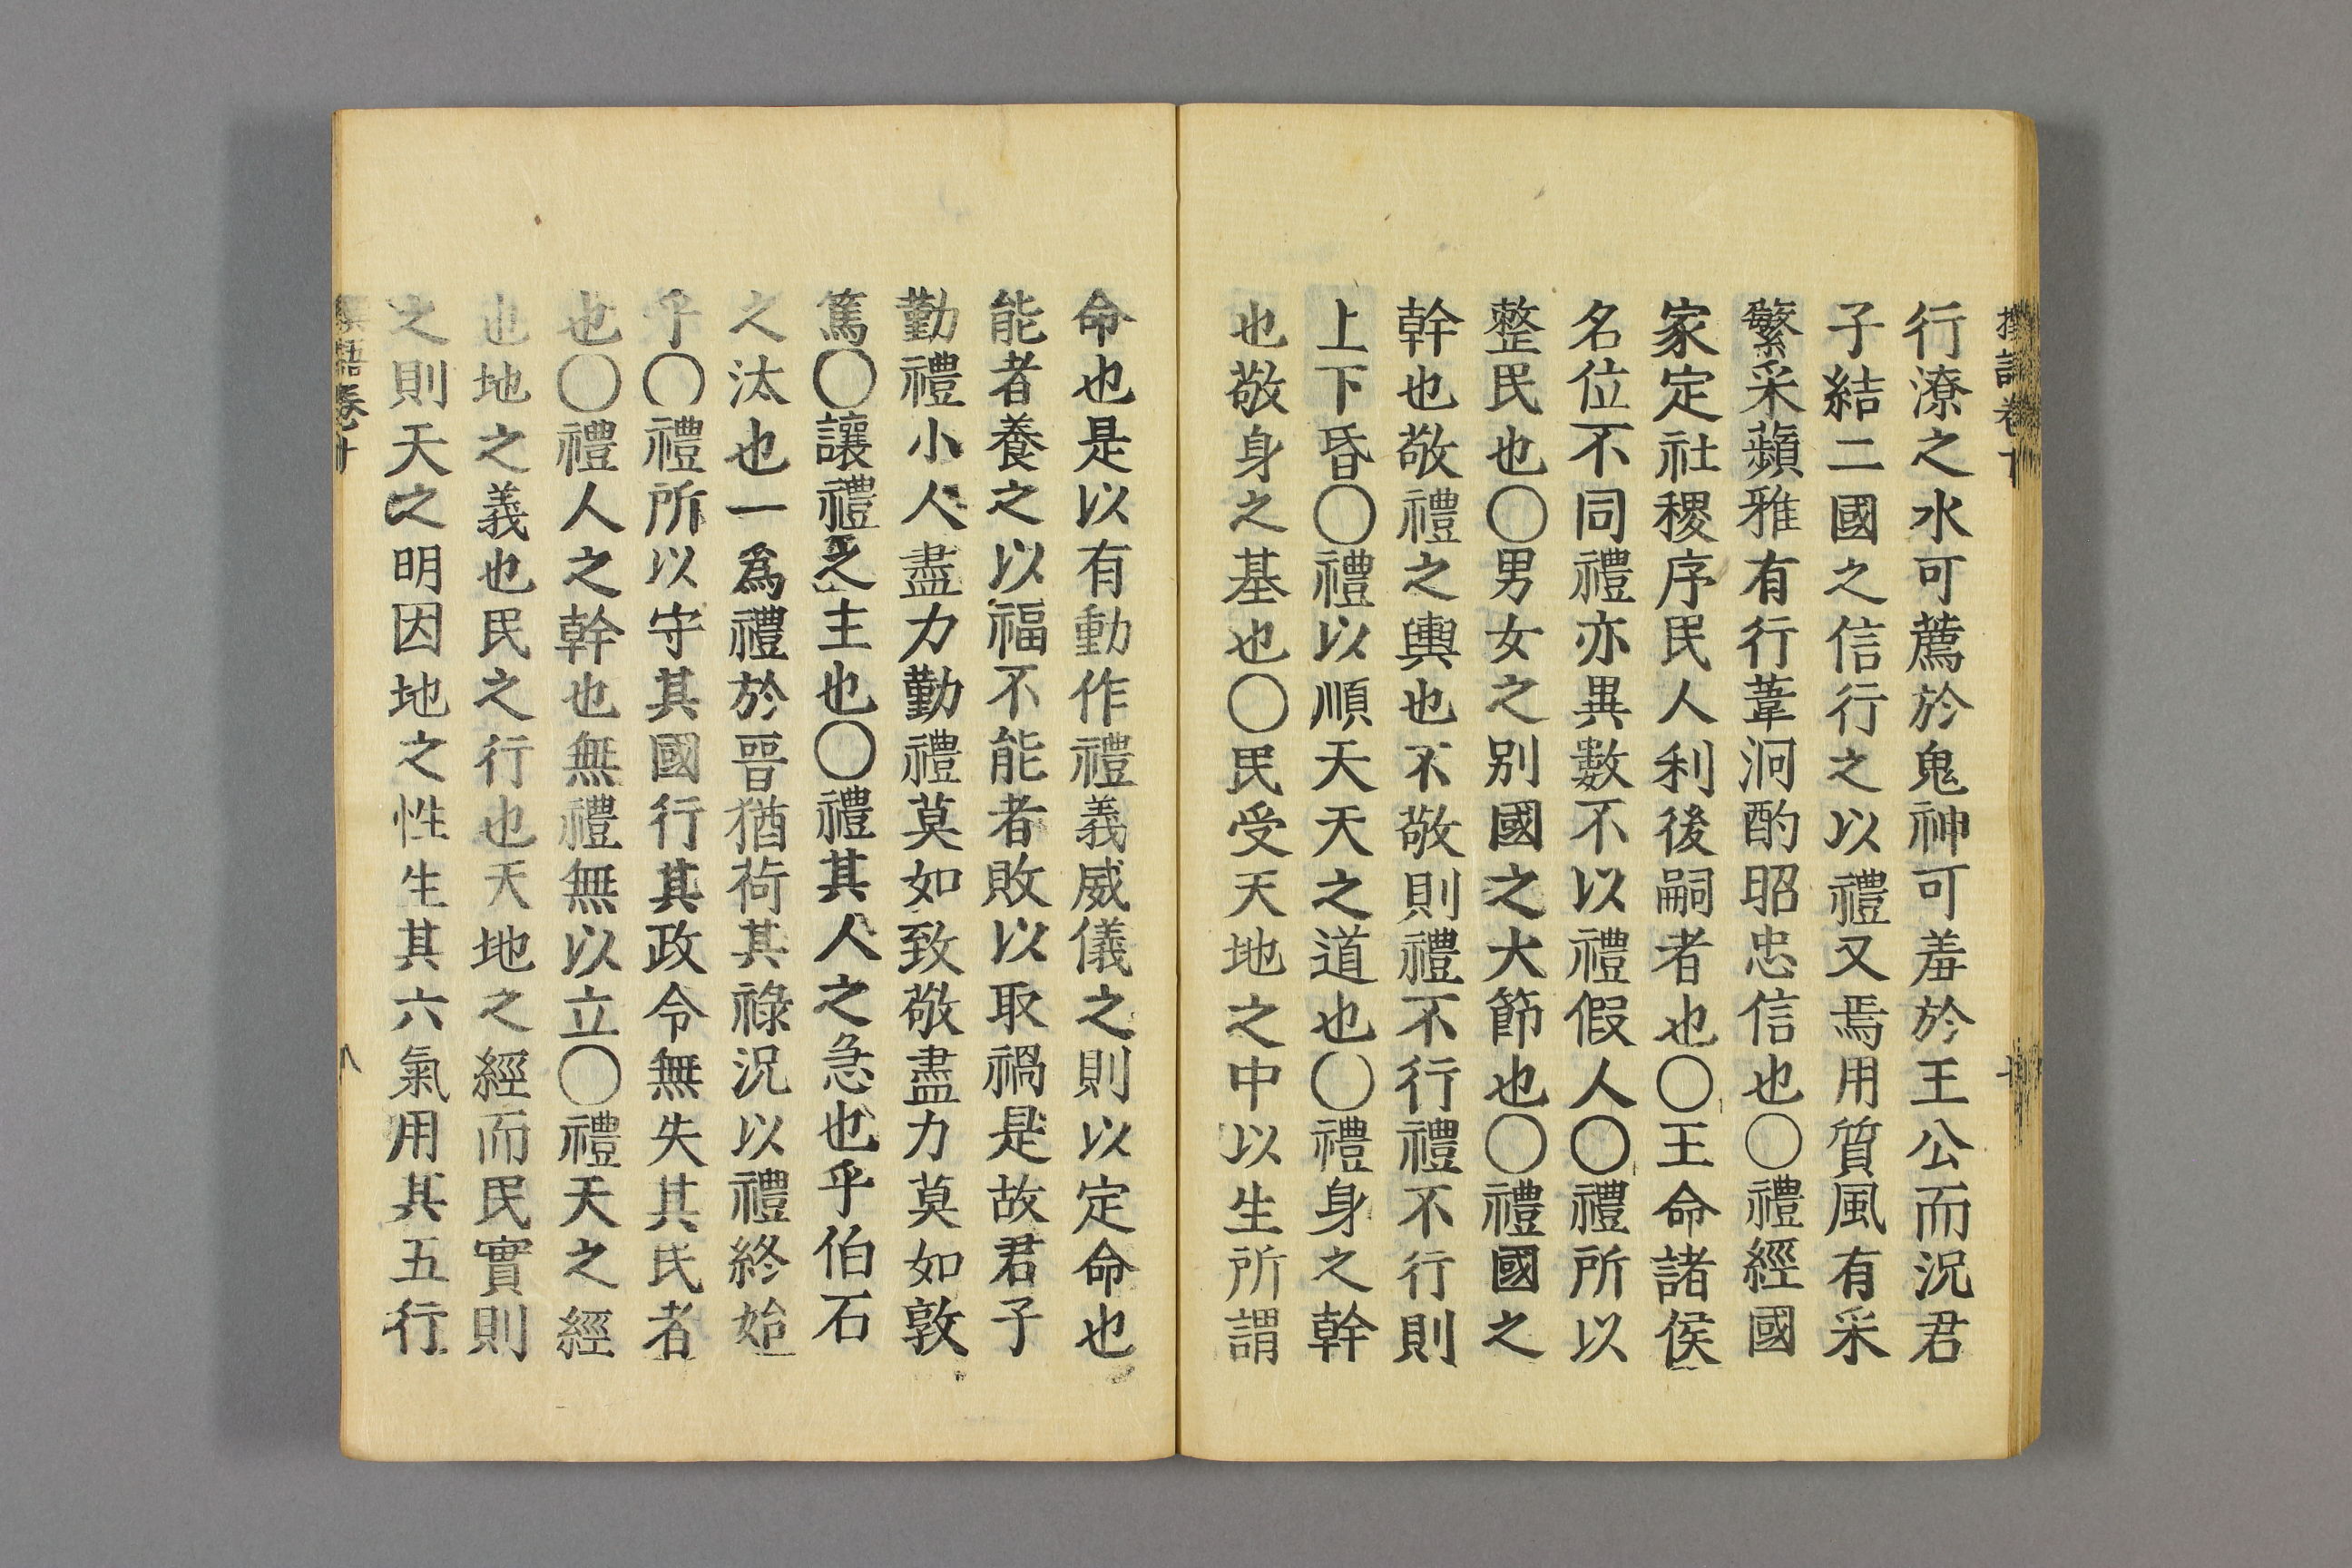 行潦之水可薦於鬼神可羞於王公而況君
子結二國之信行之以禮又焉用質風有采
繁采蘋雅有行葦泂酌昭忠信也〇禮經國
家定社稷序民人利後嗣者也〇王命諸侯
名位不同禮亦異數不以禮假人〇禮所以
整民也〇男女之别國之大節也〇禮國之
幹也敬禮之輿也不敬則禮不行禮不行則
上下昏〇禮以順天天之道也〇禮身之幹
也敬身之基也〇民受天地之中以生所謂
命也是以有動作禮義威儀之則以定命也
能者養之以福不能者敗以取禍是故君子
勤禮小人盡力勤禮莫如致敬盡力莫如敦
篤〇讓禮之主也〇禮其人之急也乎伯石
之汰也一爲禮於晉猶荷其祿況以禮終始
乎〇禮所以守其國行其政令無失其民者
也〇禮人之幹也無禮無以立〇禮天之經
也地之義也民之行也天地之經而民實則
之則天之明因地之性生其六氣用其五行
卷十
八